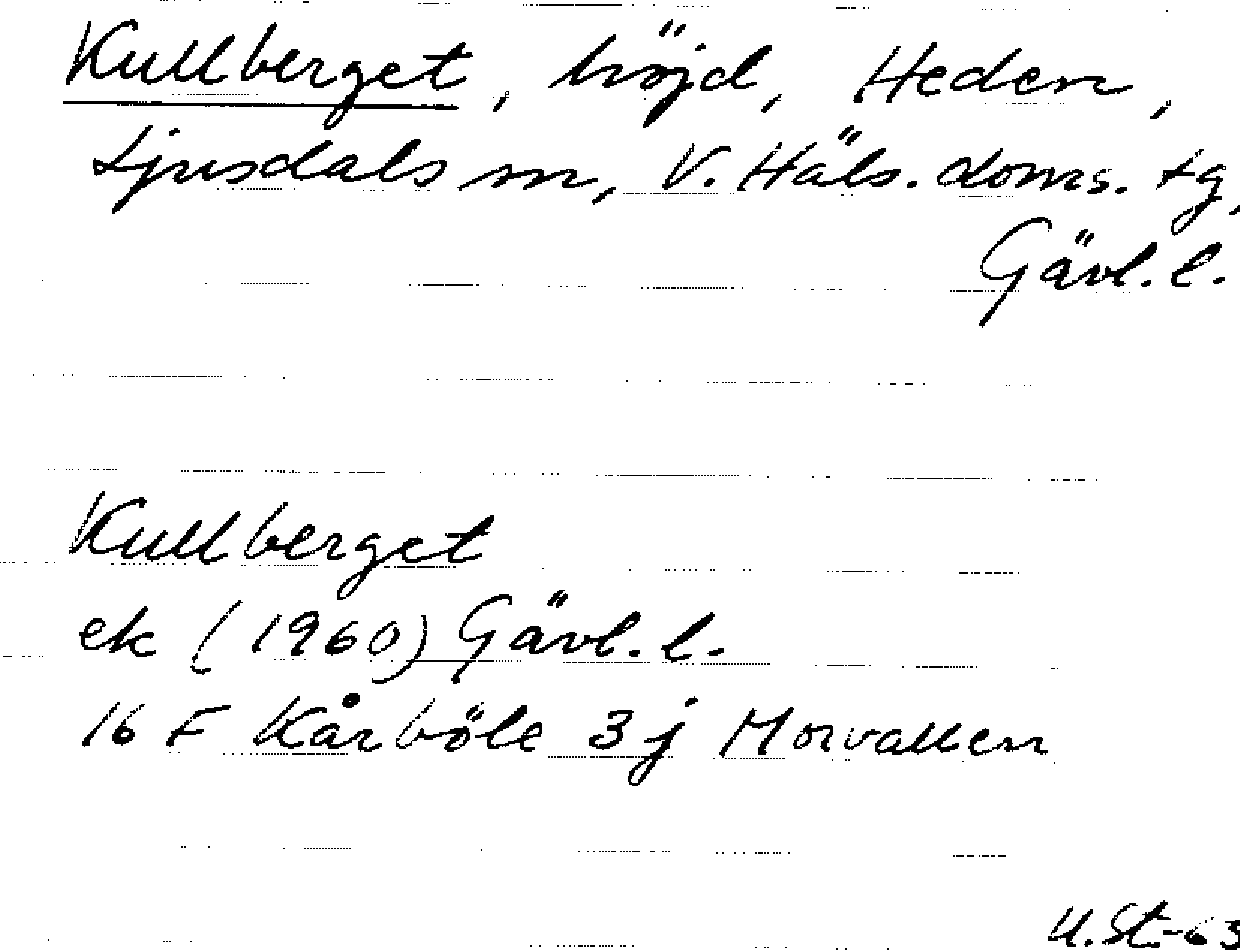 Kullberget, höjd, Heden,
Ljusdals sn, V. Häls. doms. tg,
Gävl. l.
Kullberget
ek (1960) Gävl. l.
16 F Kårböle 3 j Morvallen
U.St-63